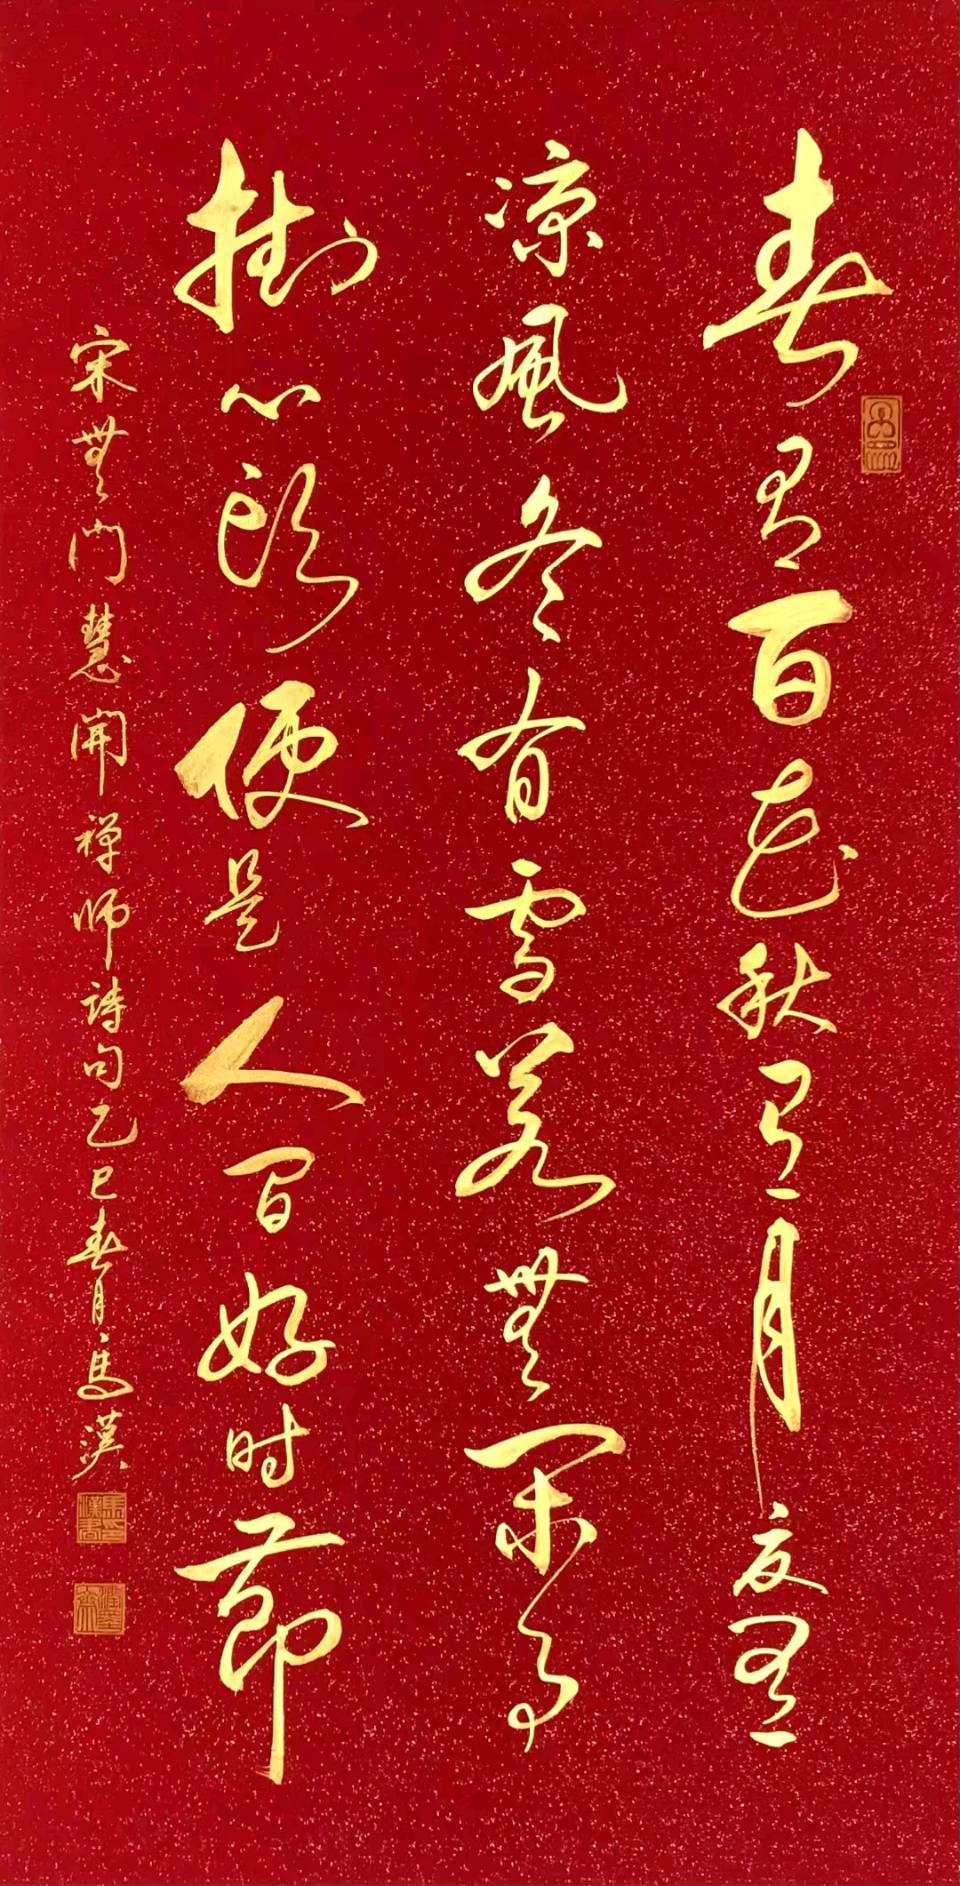 春有百花秋有月夏有
凉风冬有雪若無闲事
掛心头便是人间好时節
宋無门慧开禅师詩句乙巳春月馬漢